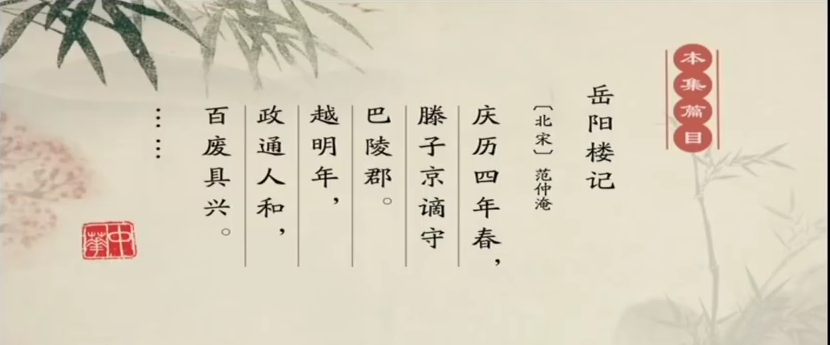 本集篇目
岳阳楼记
〔北宋〕范仲淹
庆历四年春，
滕子京谪守
巴陵郡。
越明年，
政通人和，
百废具兴。
……
中華